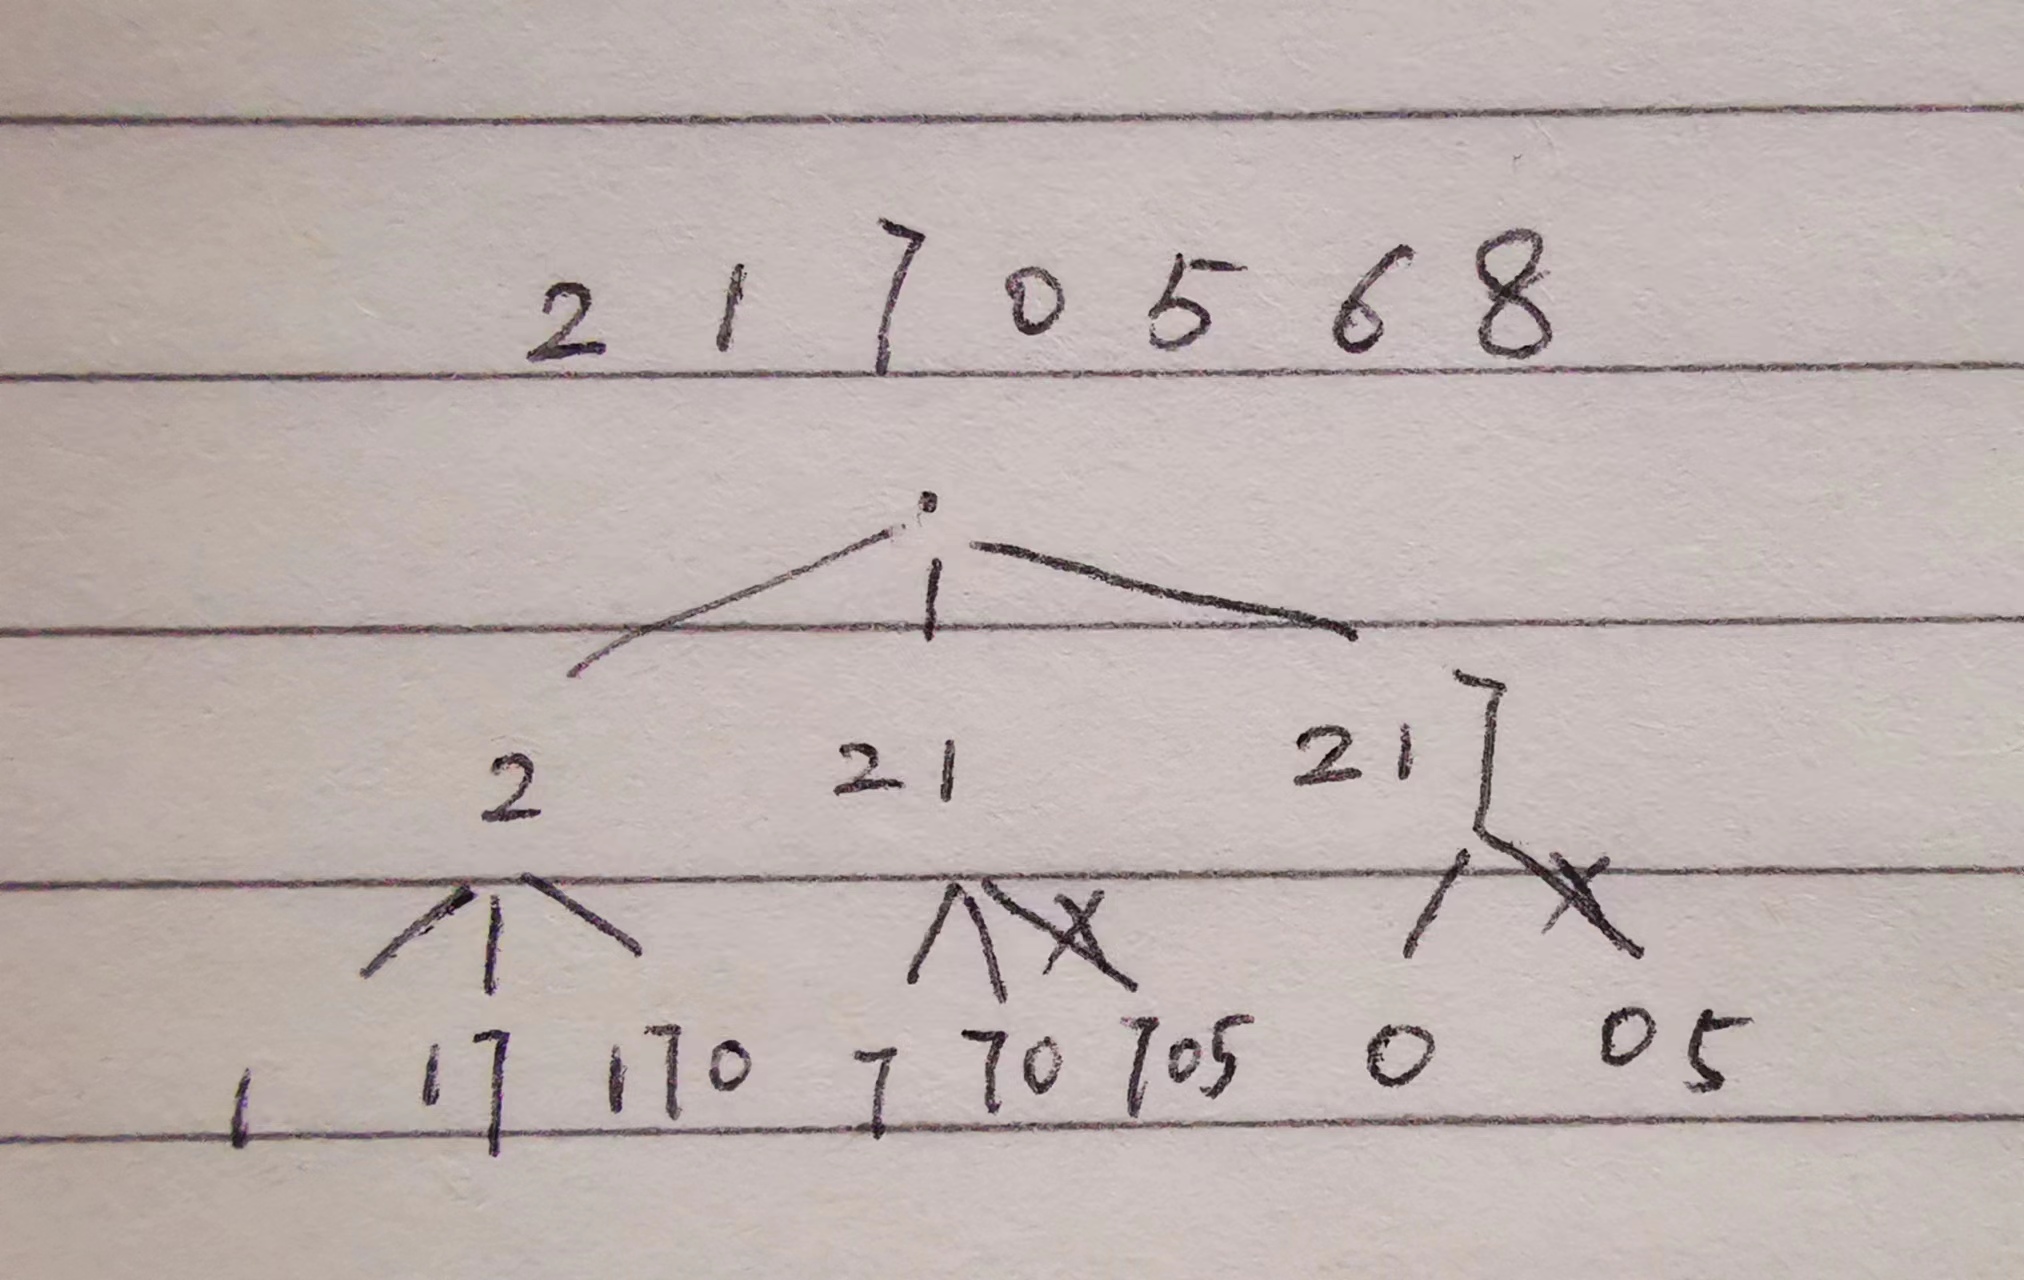 2 1 7 0 5 6 8
2 21 217
1 17 170 7 70 705 0 05